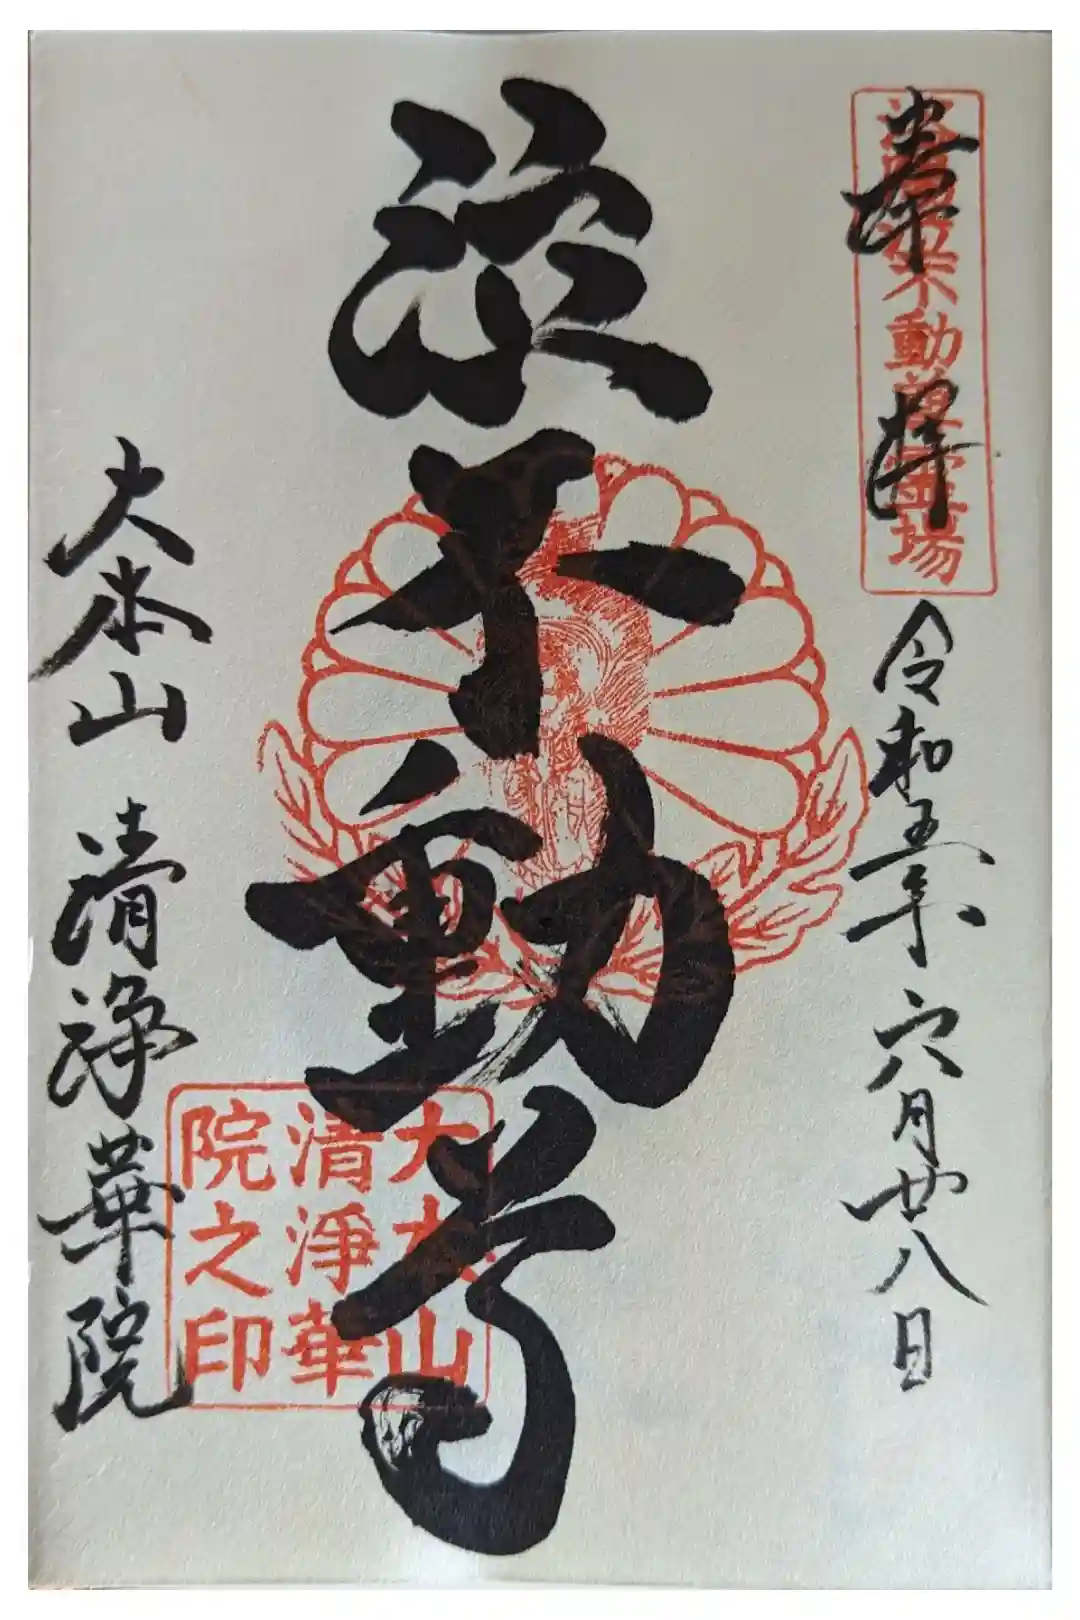 奉拝
不動尊霊場
令和五年六月廿八日
泣不動尊
大本山
清淨華
院之印
大本山 清浄華院